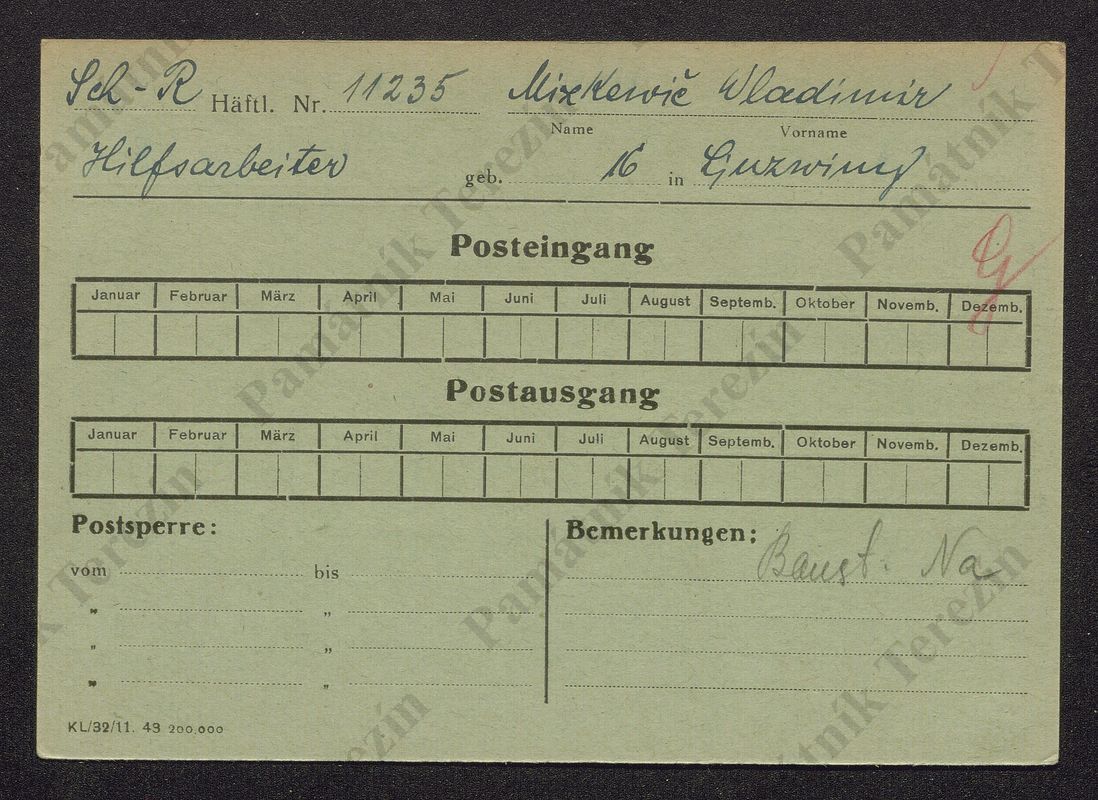 Sch - R Häftl. Nr. 11235 Mixkewič Wladimir
Name Vorname
Hilfsarbeiter geb. 16 in
Posteingang
Januar Februar März April Mai Juni Juli August Septemb. Oktober Novemb. Dezemb.
Postausgang
Januar Februar März April Mai Juni Juli August Septemb. Oktober Novemb. Dezemb.
Postsperre: Bemerkungen:
vom bis Baust. Na
„ „
„ „
„ „
KL/32/11. 43 200,000
Památník Terezín